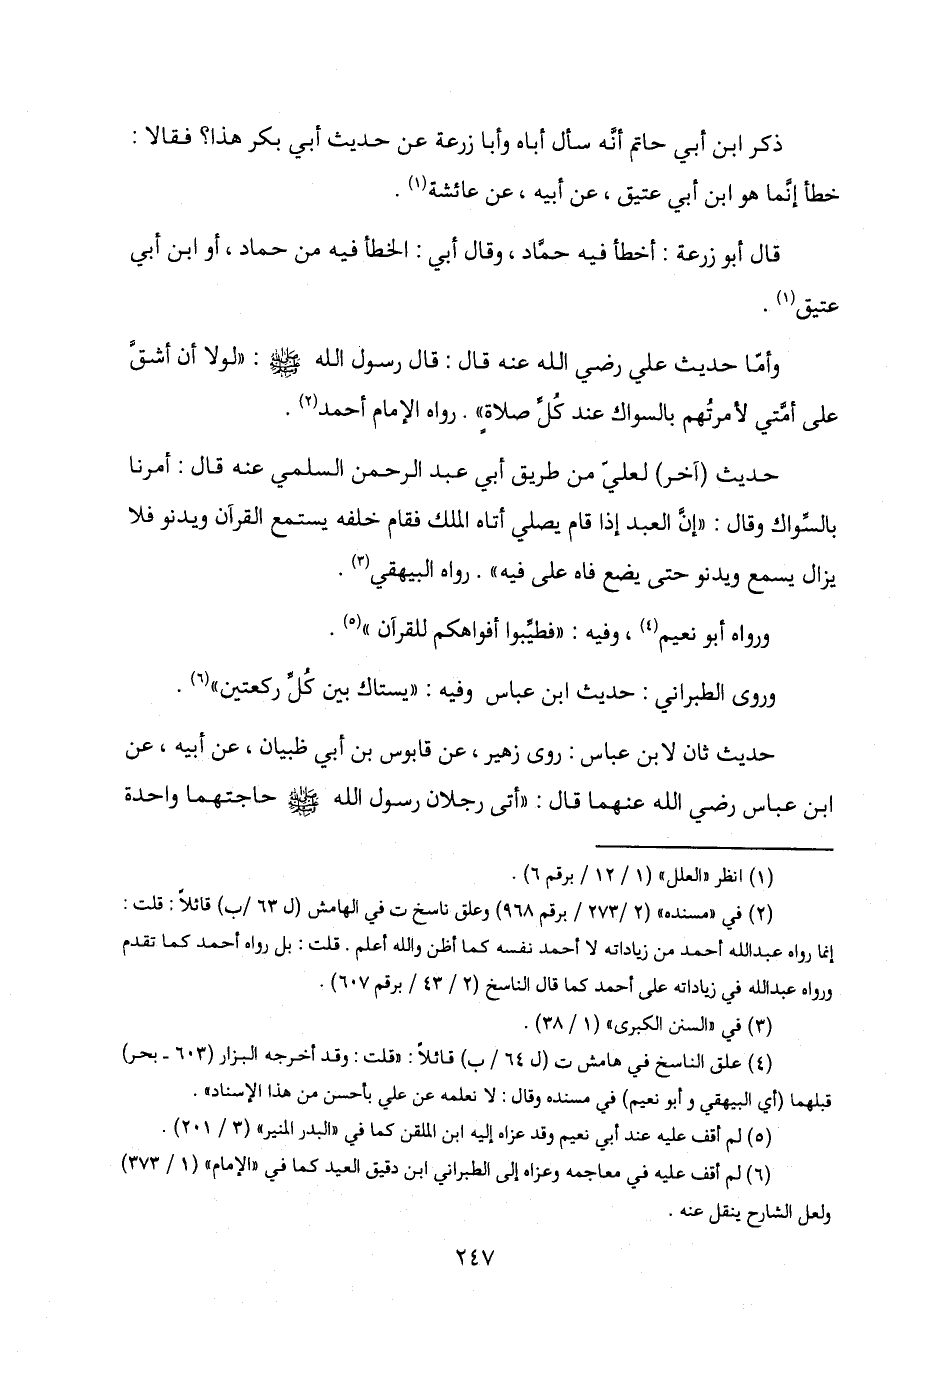 ذكر ابن أبي حاتم أنَّه سأل أباه وأبا زرعة عن حديث أبي بكر هذا؟ فقالا :
خطأ إنَّما هو ابن أبي عتيق ، عن أبيه ، عن عائشة(١) .
قال أبو زرعة : أخطأ فيه حمَّاد ، وقال أبي : الخطأ فيه من حماد ، أو ابن أبي
عتيق(١) .
وأمّا حديث علي رضي الله عنه قال : قال رسول الله ﷺ : «لولا أن أشقَّ
على أمَّتي لأمرتُهم بالسواك عند كُلِّ صلاةٍ» . رواه الإمام أحمد(٢) .
حديث (آخر) لعليّ من طريق أبي عبد الرحمن السلمي عنه قال : أمرنا
بالسِّواك وقال : «إنَّ العبد إذا قام يصلي أتاه الملك فقام خلفه يستمع القرآن ويدنو فلا
يزال يسمع ويدنو حتى يضع فاه على فيه» . رواه البيهقي(٣) .
ورواه أبو نعيم(٤) ، وفيه : «فطيِّبوا أفواهكم للقرآن »(٥) .
وروى الطبراني : حديث ابن عباس وفيه : «يستاك بين كُلِّ ركعتين»(٦) .
حديث ثان لابن عباس : روى زهير ، عن قابوس بن أبي ظبيان ، عن أبيه ، عن
ابن عباس رضي الله عنهما قال : «أتى رجلان رسول الله ﷺ حاجتهما واحدة
(١) انظر «العلل» (١ / ١٢ / برقم ٦) .
(٢) في «مسنده» (٢ /٢٧٣ / برقم ٩٦٨) وعلق ناسخ ت في الهامش (ل ٦٣ /ب) قائلاً : قلت :
إنما رواه عبدالله أحمد من زياداته لا أحمد نفسه كما أظن والله أعلم . قلت : بل رواه أحمد كما تقدم
ورواه عبدالله في زياداته على أحمد كما قال الناسخ (٢ / ٤٣ / برقم ٦٠٧) .
(٣) في «السنن الكبرى» (١ / ٣٨) .
(٤) علق الناسخ في هامش ت (ل ٦٤ / ب) قائلاً : «قلت : وقد أخرجه البزار (٦٠٣ ـ بحر)
قبلهما (أي البيهقي و أبو نعيم) في مسنده وقال : لا نعلمه عن علي بأحسن من هذا الإسناد» .
(٥) لم أقف عليه عند أبي نعيم وقد عزاه إليه ابن الملقن كما في «البدر المنير» (٣ / ٢٠١) .
(٦) لم أقف عليه في معاجمه وعزاه إلى الطبراني ابن دقيق العيد كما في «الإمام» (١ / ٣٧٣)
ولعل الشارح ينقل عنه .
٢٤٧